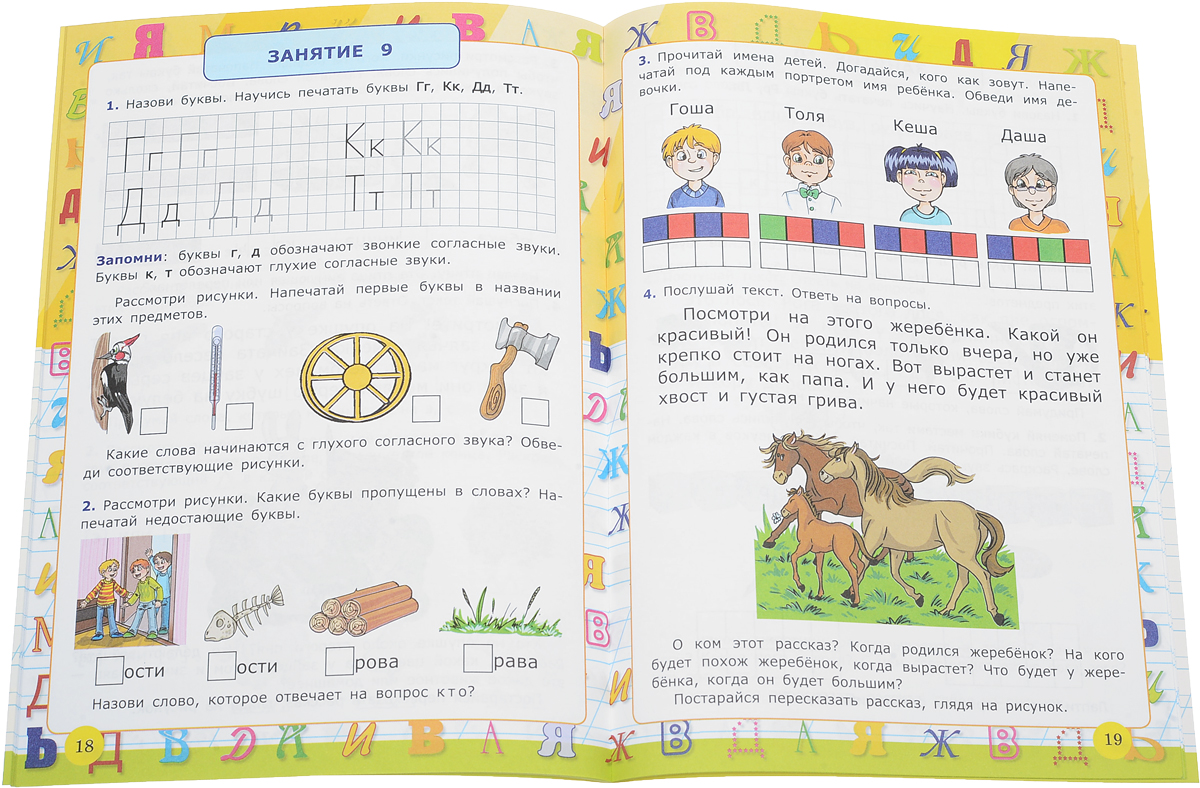 ЗАНЯТИЕ 9
1. Назови буквы. Научись печатать буквы Гг, Кк, Дд, Тт.
Гг Гг Кк Кк
Дд Дд Тт Тт
Запомни: буквы г, д обозначают звонкие согласные звуки.
Буквы к, т обозначают глухие согласные звуки.
Рассмотри рисунки. Напечатай первые буквы в названии
этих предметов.
Какие слова начинаются с глухого согласного звука? Обве-
ди соответствующие рисунки.
2. Рассмотри рисунки. Какие буквы пропущены в словах? На-
печатай недостающие буквы.
ости ости рова рава
Назови слово, которое отвечает на вопрос кто?
18
3. Прочитай имена детей. Догадайся, кого как зовут. Напе-
чатай под каждым портретом имя ребёнка. Обведи имя де-
вочки.
Гоша Толя Кеша Даша
4. Послушай текст. Ответь на вопросы.
Посмотри на этого жеребёнка. Какой он
красивый! Он родился только вчера, но уже
крепко стоит на ногах. Вот вырастет и станет
большим, как папа. И у него будет красивый
хвост и густая грива.
О ком этот рассказ? Когда родился жеребёнок? На кого
будет похож жеребёнок, когда вырастет? Что будет у жере-
бёнка, когда он будет большим?
Постарайся пересказать рассказ, глядя на рисунок.
19